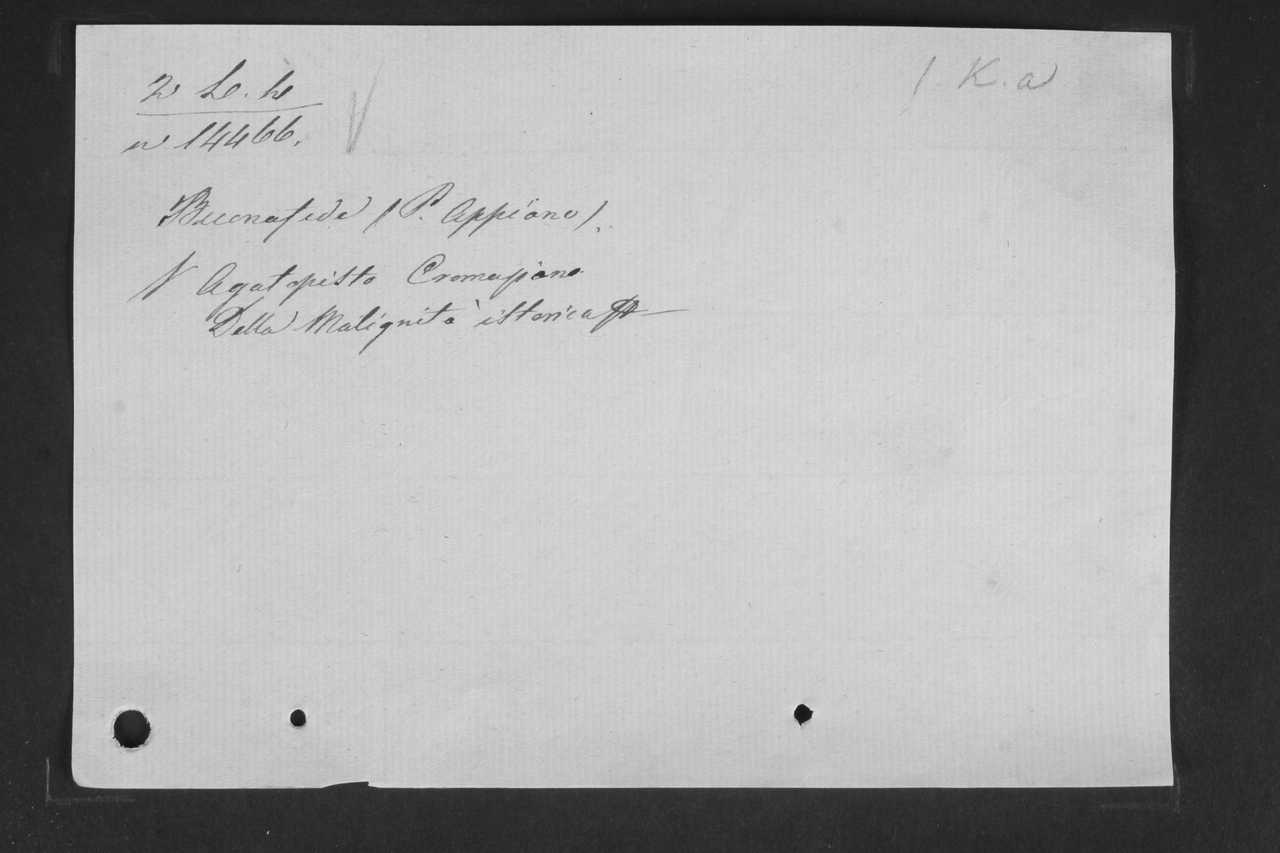 1. K. a
2 L. h
n 14466.
Buonafede (P. Appiano).
V Agatopisto Cromaziano
Della Malignità istorica